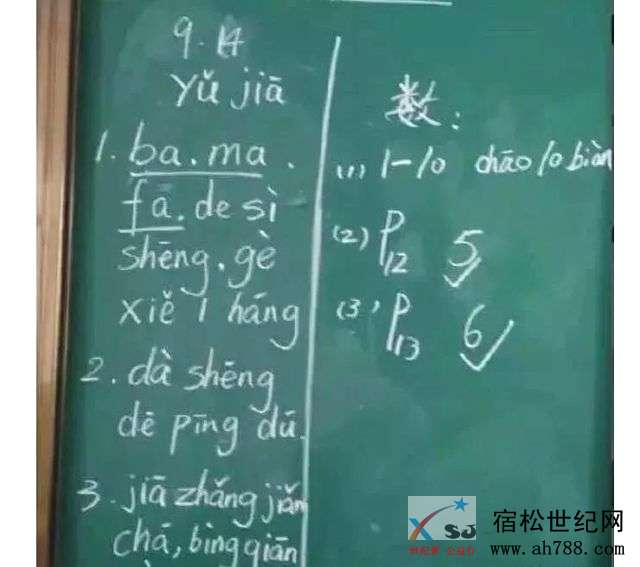 9.14
Yǔ jiā
1. ba. ma.
fā. de sì
shēng. gè
xiě 1 háng
2. dà shēng
dē pīng dú.
3. jiā zhǎng jiǎn
chá, bìng qiān
数:
(1) 1-10 chāo 10 biàn
(2) P12 5
(3) P13 6
XSJ
世纪家 公益行
宿松世纪网
www.ah788.com